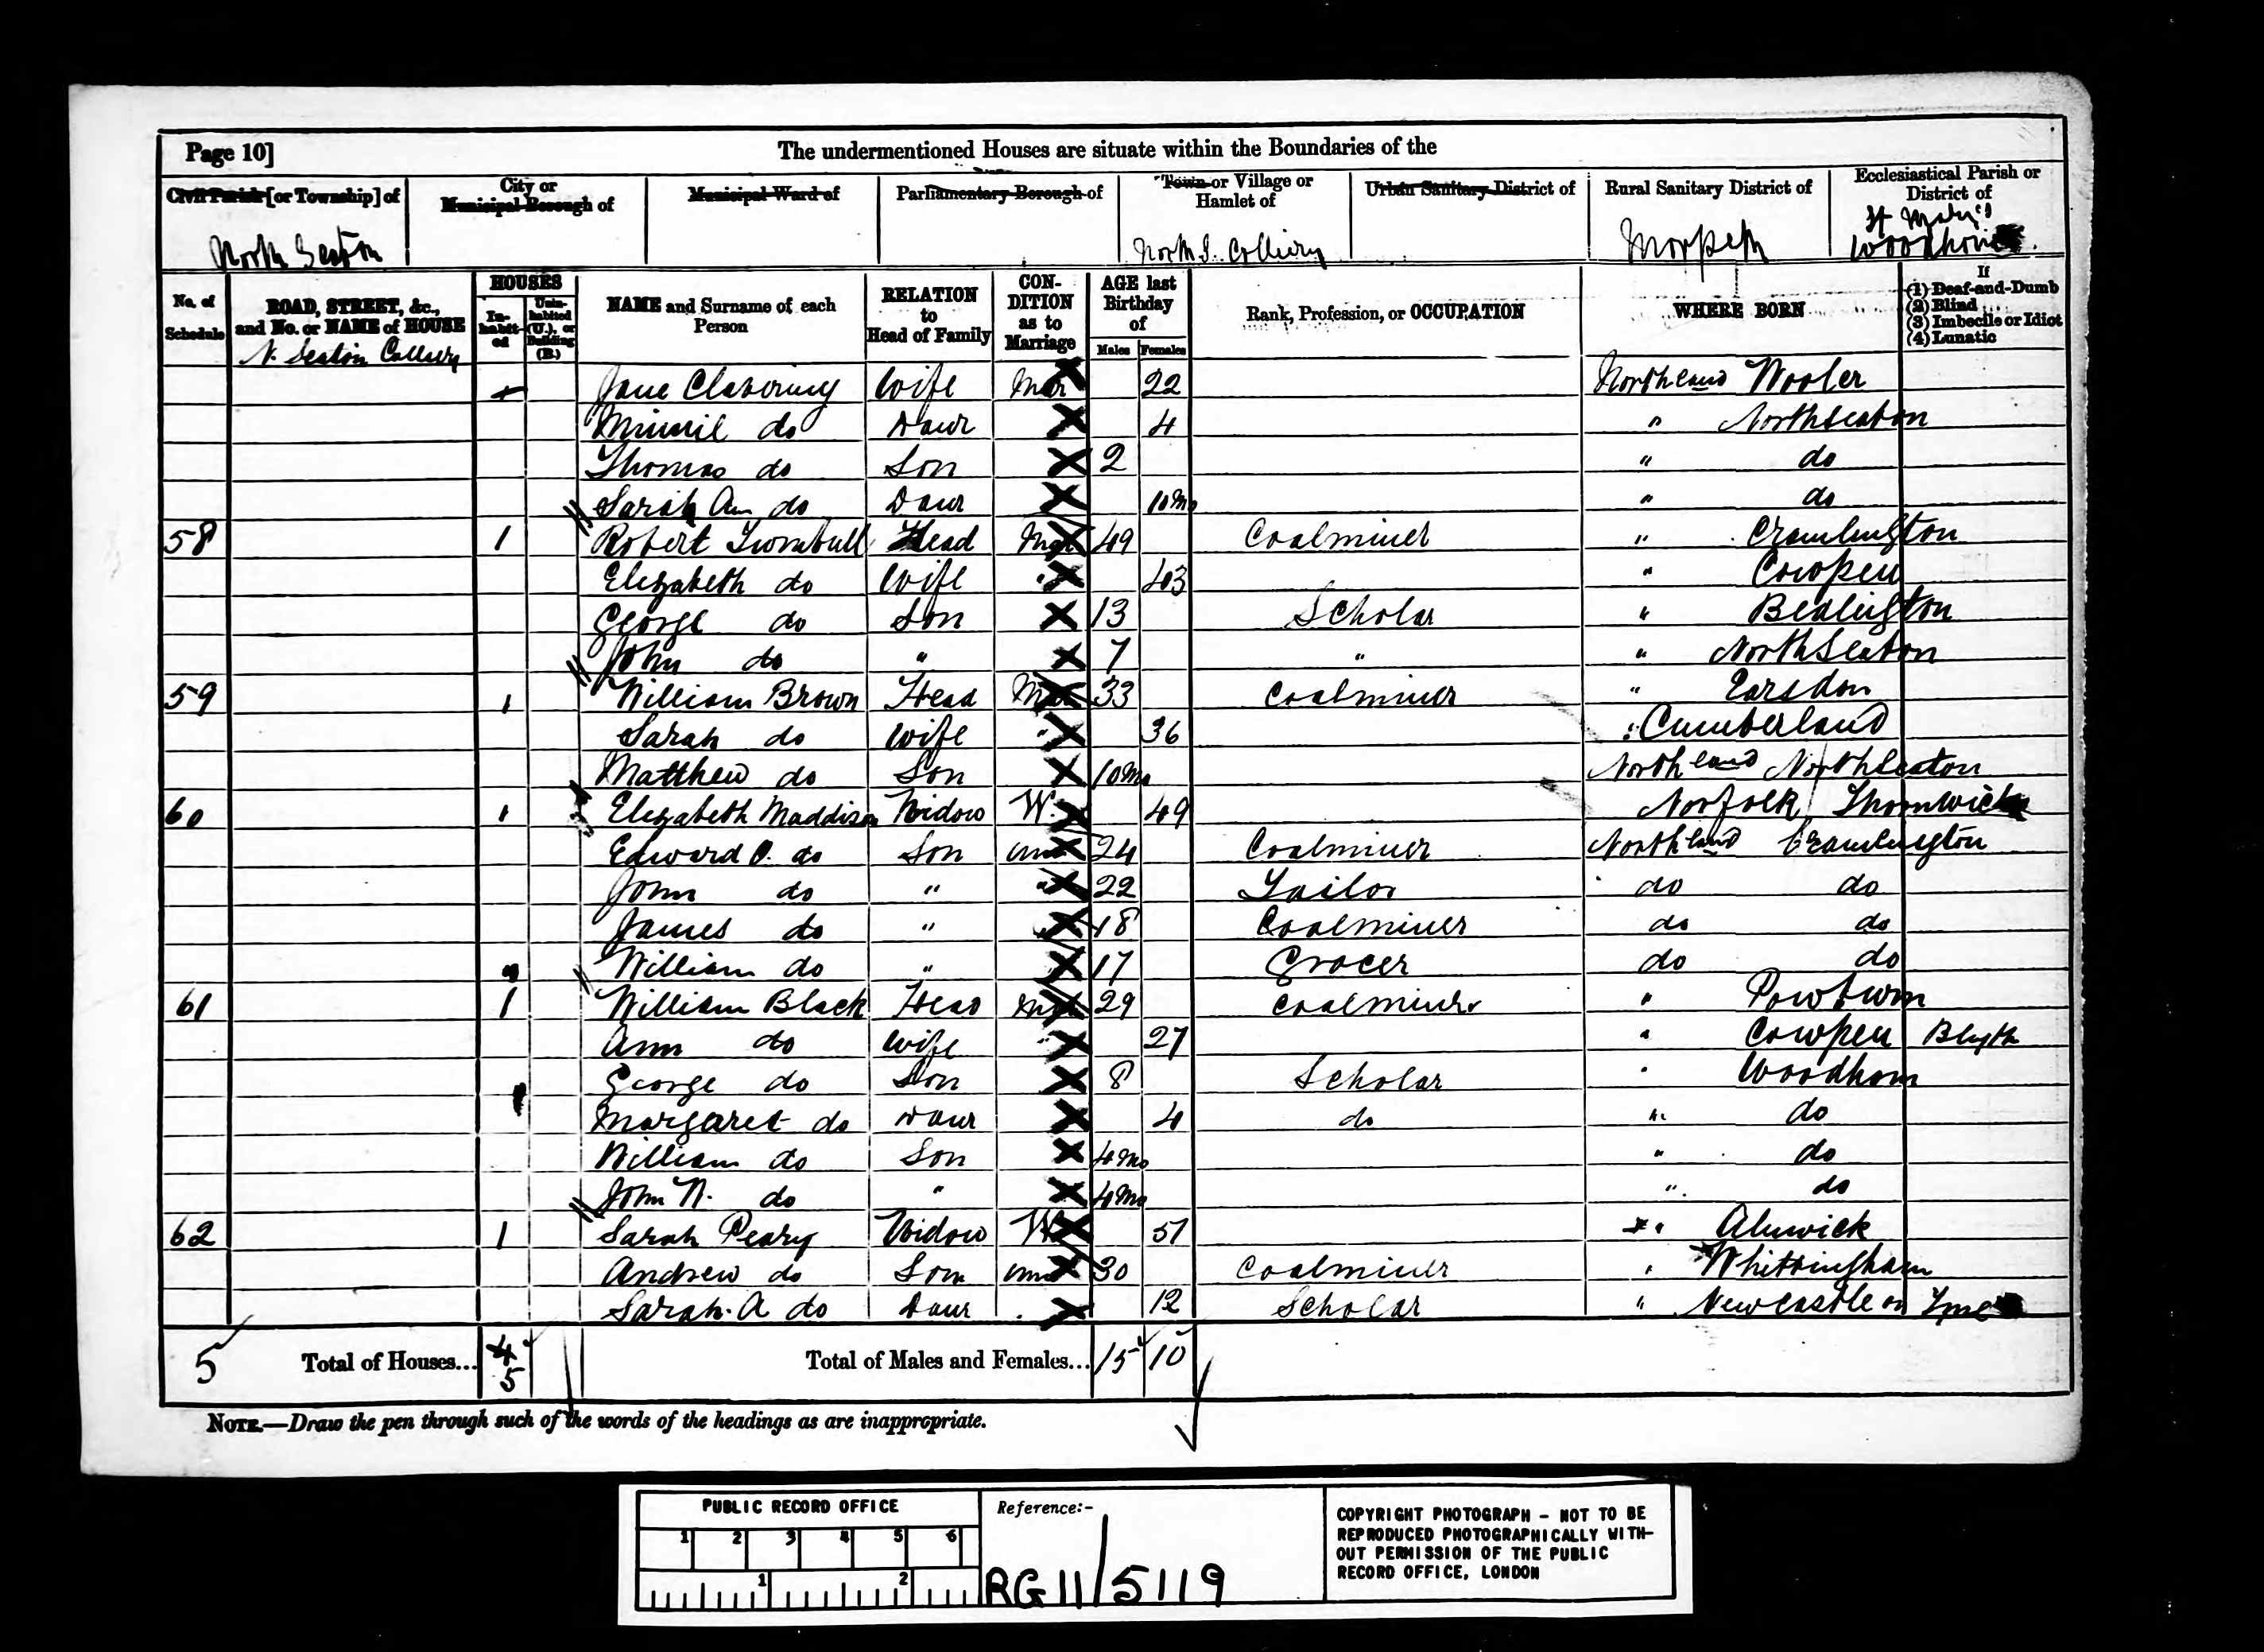 Page 10]
The undermentioned Houses are situate within the Boundaries of the
Civil Parish [or Township] of City or Municipal Borough of Municipal Ward of Parliamentary Borough of Town or Village or Hamlet of Urban Sanitary District of Rural Sanitary District of Ecclesiastical Parish or District of
North Seaton North S. Colliery Morpeth St Mary's Woodhorn
No. of Schedule ROAD, STREET, &c., and No. or NAME of HOUSE HOUSES In-habit-ed Unin-habited (U.), or Building (B.) NAME and Surname of each Person RELATION to Head of Family CON-DITION as to Marriage AGE last Birthday of Males Females Rank, Profession, or OCCUPATION WHERE BORN If (1) Deaf-and-Dumb (2) Blind (3) Imbecile or Idiot (4) Lunatic
N. Seaton Colliery
Jane Clavering Wife Mar 22 Northland Wooler
Minnie do Daur 4 " Northseaton
Thomas do Son 2 " do
Sarah Ann do Daur 10 Mo " do
58 1 Robert Turnbull Head Mar 49 Coalminer " Cramlington
Elizabeth do Wife " 43 " Cowpen
George do Son 13 Scholar " Bedlington
John do " 7 " " North Seaton
59 1 William Brown Head Mar 33 Coalminer " Earsdon
Sarah do Wife " 36 Cumberland
Matthew do Son 10 Mo Northland North Seaton
60 1 Elizabeth Maddison Widow W. 49 Norfolk
Edward O. do Son Unm 24 Coalminer Northland Cramlington
John do " " 22 Tailor do do
James do " 18 Coalminer do do
William do " 17 Grocer do do
61 1 William Black Head Mar 29 Coalminer "
Ann do Wife " 27 " Cowpen Blyth
George do Son 8 Scholar " Woodhorn
Margaret do Daur 4 do " do
William do Son 4 Mo " do
John N. do " 4 Mo " do
62 1 Sarah Peary Widow W 51 " Alnwick
Andrew do Son Unm 30 Coalminer " Whittingham
Sarah A do Daur 12 Scholar " Newcastle on Tyne
5 Total of Houses... 4 5 Total of Males and Females... 15 10
NOTE.—Draw the pen through such of the words of the headings as are inappropriate.
PUBLIC RECORD OFFICE
1 2 3 4 5 6
1 2
Reference:-
RG 11/5119
COPYRIGHT PHOTOGRAPH - NOT TO BE
REPRODUCED PHOTOGRAPHICALLY WITH-
OUT PERMISSION OF THE PUBLIC
RECORD OFFICE, LONDON